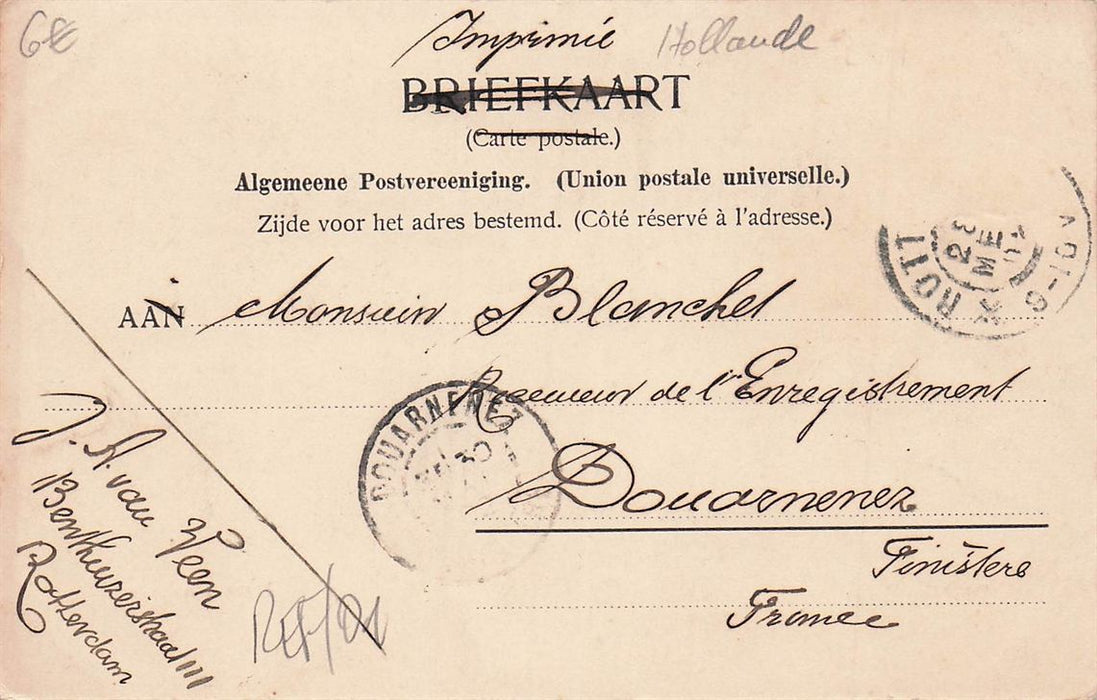 6€
Imprimé Hollande
BRIEFKAART
(Carte postale.)
Algemeene Postvereeniging. (Union postale universelle.)
Zijde voor het adres bestemd. (Côté réservé à l'adresse.)
AAN Monsieur Blanchet
Receveur de l'Enregistrement
Douarnenez
Finistère
France
J. A. van Veen
Rotterdam
DOUARNENEZ
30
ROTT
28 ME